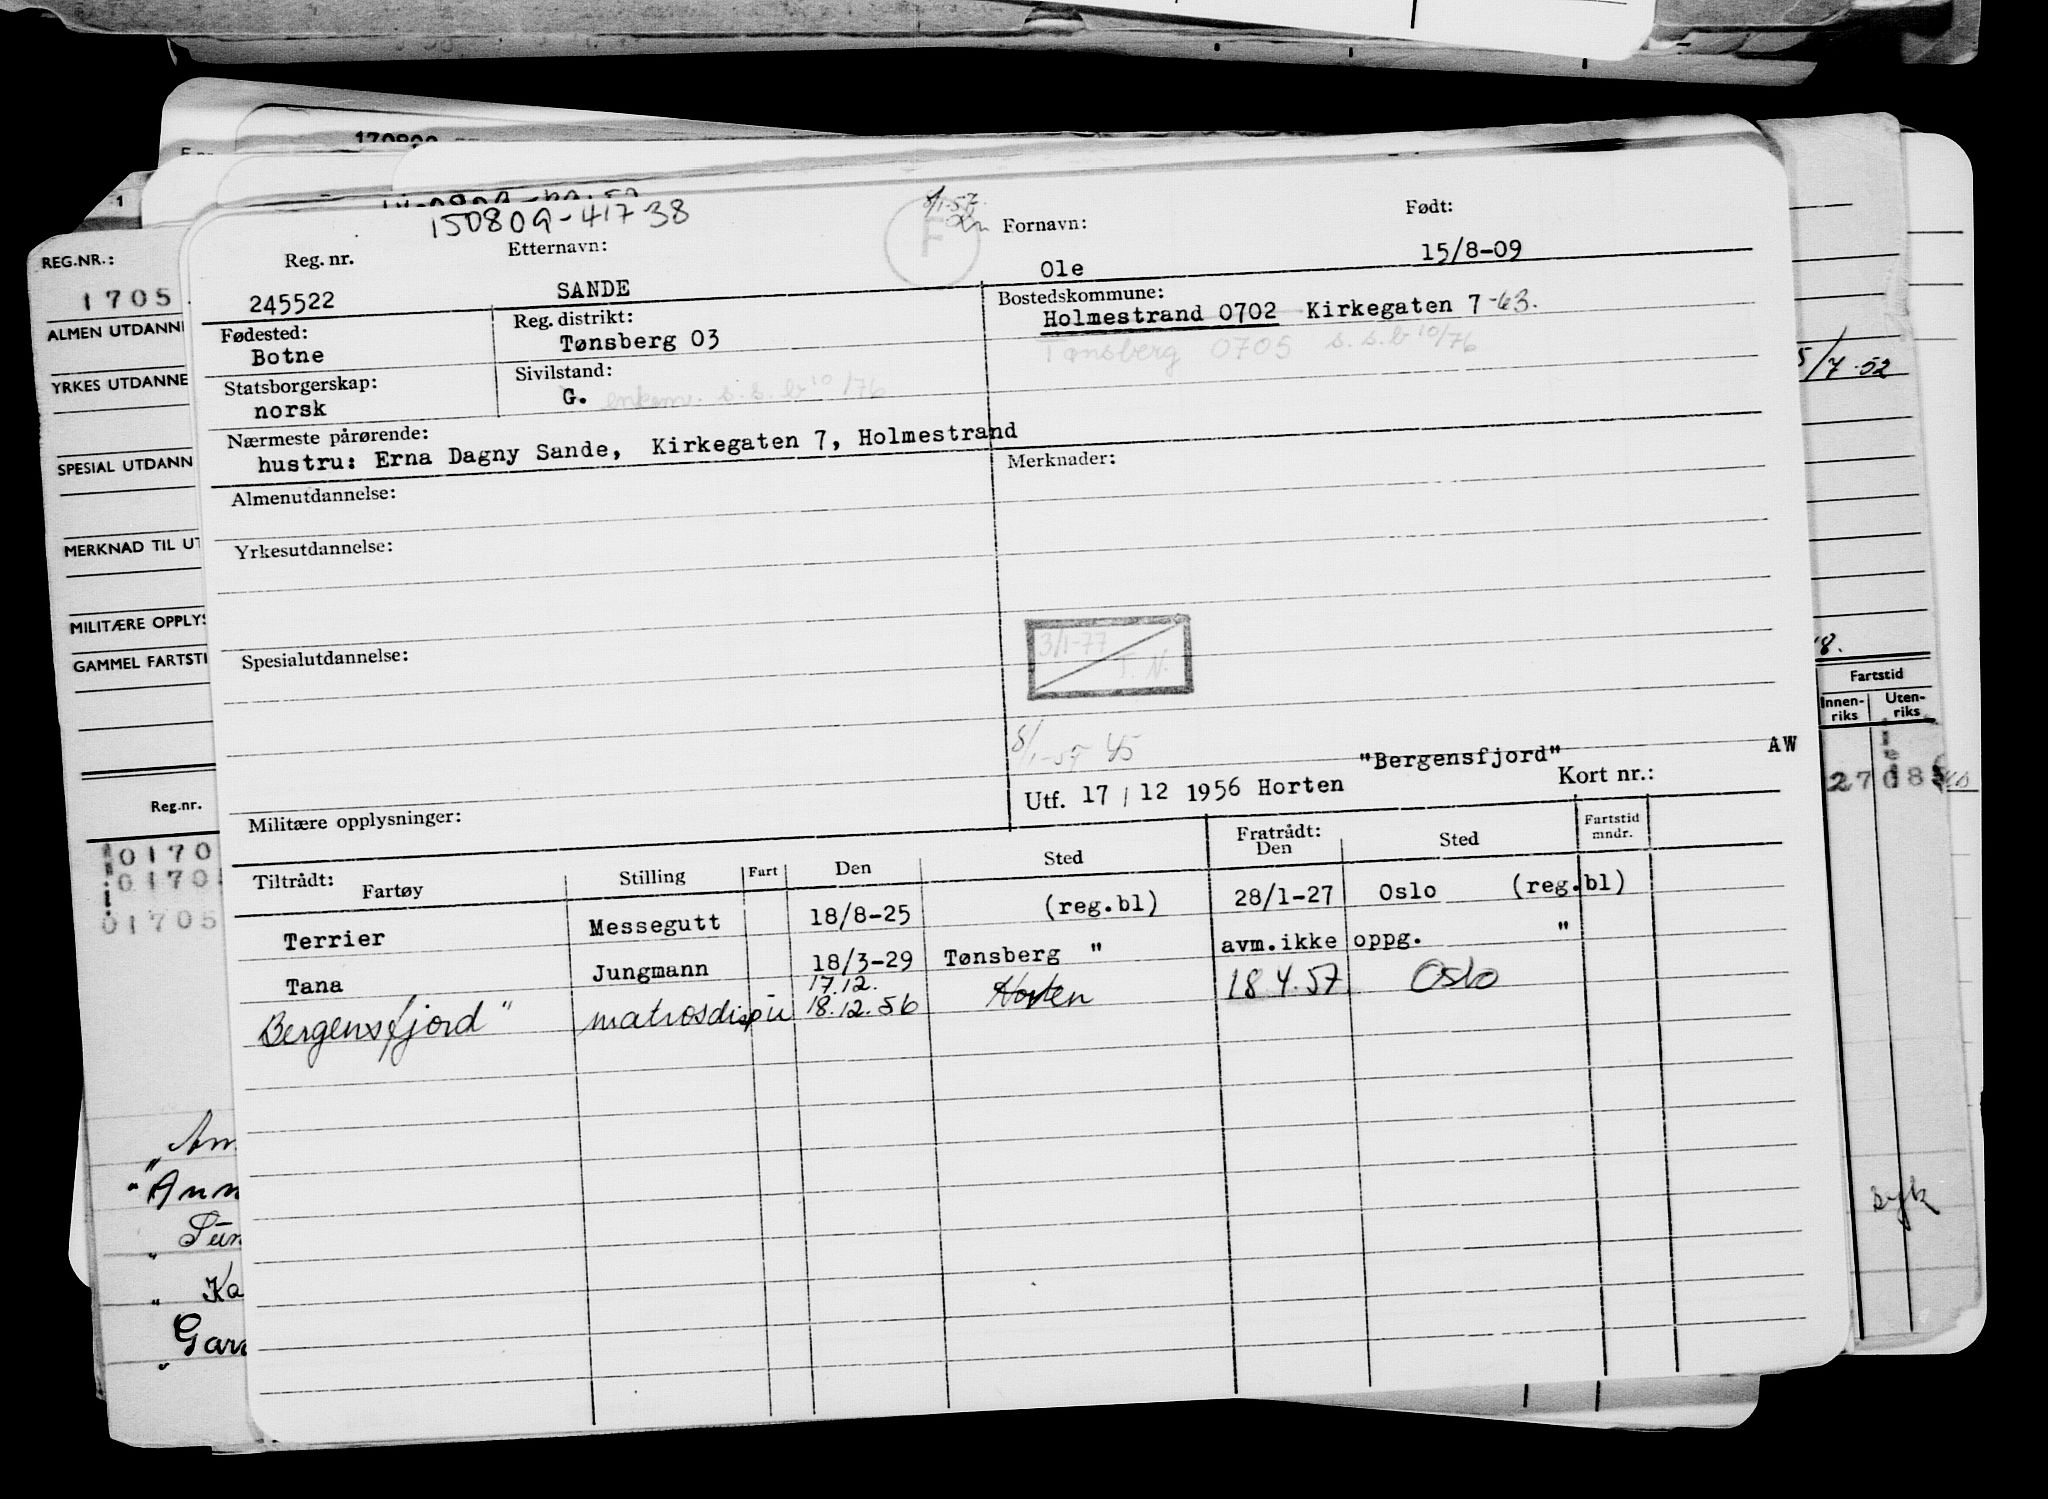 170809
REG.NR.:
1705
ALMEN UTDANNE
YRKES UTDANNE
SPESIAL UTDANN
MERKNAD TIL UT
MILITÆRE OPPLYS
GAMMEL FARTSTI
Reg.nr.
01705
150809-41738
8/1-57.
F
Reg. nr. Etternavn: Fornavn: Født:
245522 SANDE Ole 15/8-09
Fødested: Reg. distrikt: Bostedskommune:
Botne Tønsberg 03 Holmestrand 0702 Kirkegaten 7 -63.
Tønsberg 0705 s.s.b 10/76
Statsborgerskap: Sivilstand:
norsk G. enkem. s.s.b 10/76
Nærmeste pårørende:
hustru: Erna Dagny Sande, Kirkegaten 7, Holmestrand
Almenutdannelse: Merknader:
Yrkesutdannelse:
Spesialutdannelse:
3/1-77
T. N.
8/1-57 45
"Bergensfjord" AW
Militære opplysninger: Utf. 17 / 12 1956 Horten Kort nr.:
Tiltrådt: Fartøy Stilling Fart Den Sted Fratrådt: Den Sted Fartstid mndr.
Terrier Messegutt 18/8-25 (reg.bl) 28/1-27 Oslo (reg.bl)
Tana Jungmann 18/3-29 Tønsberg " avm.ikke oppg. "
17.12.
Bergensfjord" 18.12.56 Horten 18 4.57. Oslo
5/7-52
18.
Fartstid
Innen-riks Uten-riks
syk
"Ann
Ka
Gar